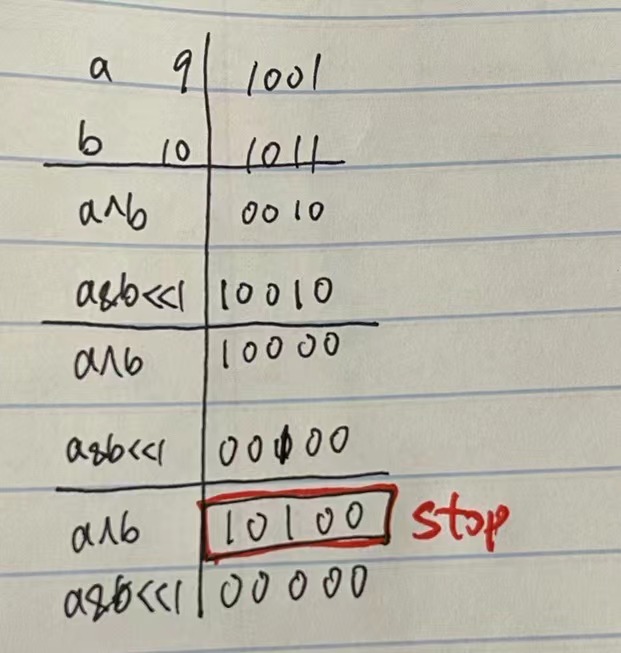 a 9 1001
b 10 1011
a^b 0010
a&b<<1 10010
a^b 10000
a&b<<1 00100
a^b 10100 stop
a&b<<1 00000